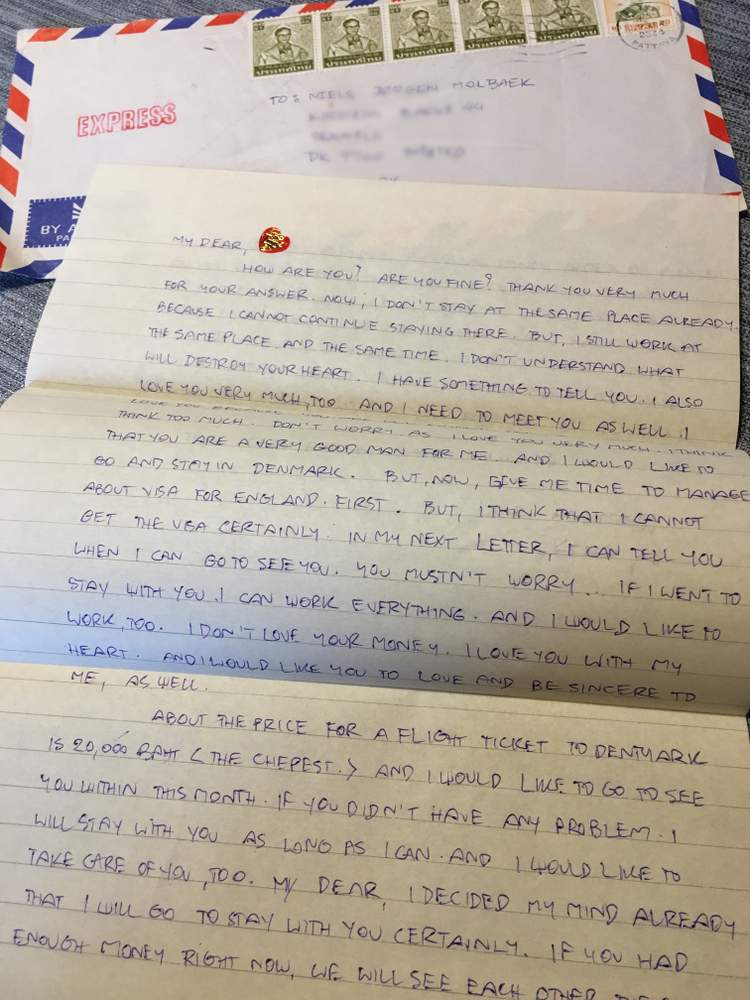 ประเทศไทย ประเทศไทย ประเทศไทย ประเทศไทย ประเทศไทย
TO : NIELS JØRGEN MOLBAEK
EXPRESS
BY A
PA
MY DEAR,
HOW ARE YOU? ARE YOU FINE? THANK YOU VERY MUCH
FOR YOUR ANSWER. NOW, I DON'T STAY AT THE SAME PLACE ALREADY.
BECAUSE I CANNOT CONTINUE STAYING THERE. BUT, I STILL WORK AT
THE SAME PLACE AND THE SAME TIME. I DON'T UNDERSTAND WHAT
WILL DESTROY YOUR HEART. I HAVE SOMETHING TO TELL YOU. I ALSO
LOVE YOU VERY MUCH, TOO AND I NEED TO MEET YOU AS WELL. I
LOVE YOU BECAUSE
THINK TOO MUCH. DON'T WORRY AS I LOVE YOU VERY MUCH. I THINK
THAT YOU ARE A VERY GOOD MAN FOR ME. AND I WOULD LIKE TO
GO AND STAY IN DENMARK. BUT, NOW, GIVE ME TIME TO MANAGE
ABOUT VISA FOR ENGLAND. FIRST. BUT, I THINK THAT I CANNOT
GET THE VISA CERTAINLY. IN MY NEXT LETTER, I CAN TELL YOU
WHEN I CAN GO TO SEE YOU. YOU MUSTN'T WORRY... IF I WENT TO
STAY WITH YOU. I CAN WORK EVERYTHING. AND I WOULD LIKE TO
WORK, TOO. I DON'T LOVE YOUR MONEY. I LOVE YOU WITH MY
HEART. AND I WOULD LIKE YOU TO LOVE AND BE SINCERE TO
ME, AS WELL.
ABOUT THE PRICE FOR A FLIGHT TICKET TO DENMARK
IS 20,000 BAHT < THE CHEPEST. > AND I WOULD LIKE TO GO TO SEE
YOU WITHIN THIS MONTH. IF YOU DIDN'T HAVE ANY PROBLEM. I
WILL STAY WITH YOU AS LONG AS I CAN. AND I WOULD LIKE TO
TAKE CARE OF YOU, TOO. MY DEAR, I DECIDED MY MIND ALREADY
THAT I WILL GO TO STAY WITH YOU CERTAINLY. IF YOU HAD
ENOUGH MONEY RIGHT NOW, WE WILL SEE EACH OTHER